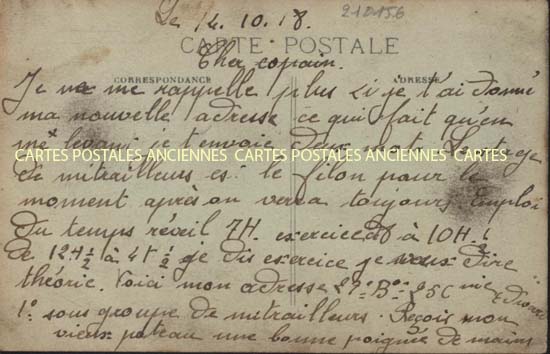 Le 14.10.18.
210156
CARTE POSTALE
Cher copain.
CORRESPONDANCE
ADRESSE
Je ne me rappelle plus si je t'ai donné
ma nouvelle adresse ce qui fait qu'en
me levant je t'envoie deux mots. Le stage
CARTES POSTALES ANCIENNES CARTES POSTALES ANCIENNES CARTES
de mitrailleurs est le filon pour le
moment après on verra toujours. Emploi
du temps réveil 7H. exercice à 10H ½
de 12H ½ à 4H ½ je dis exercice je veux dire
théorie. Voici mon adresse Bon 25 Cnie
1° sous groupe de mitrailleurs. Reçois mon
vieux poteau une bonne poignée de mains